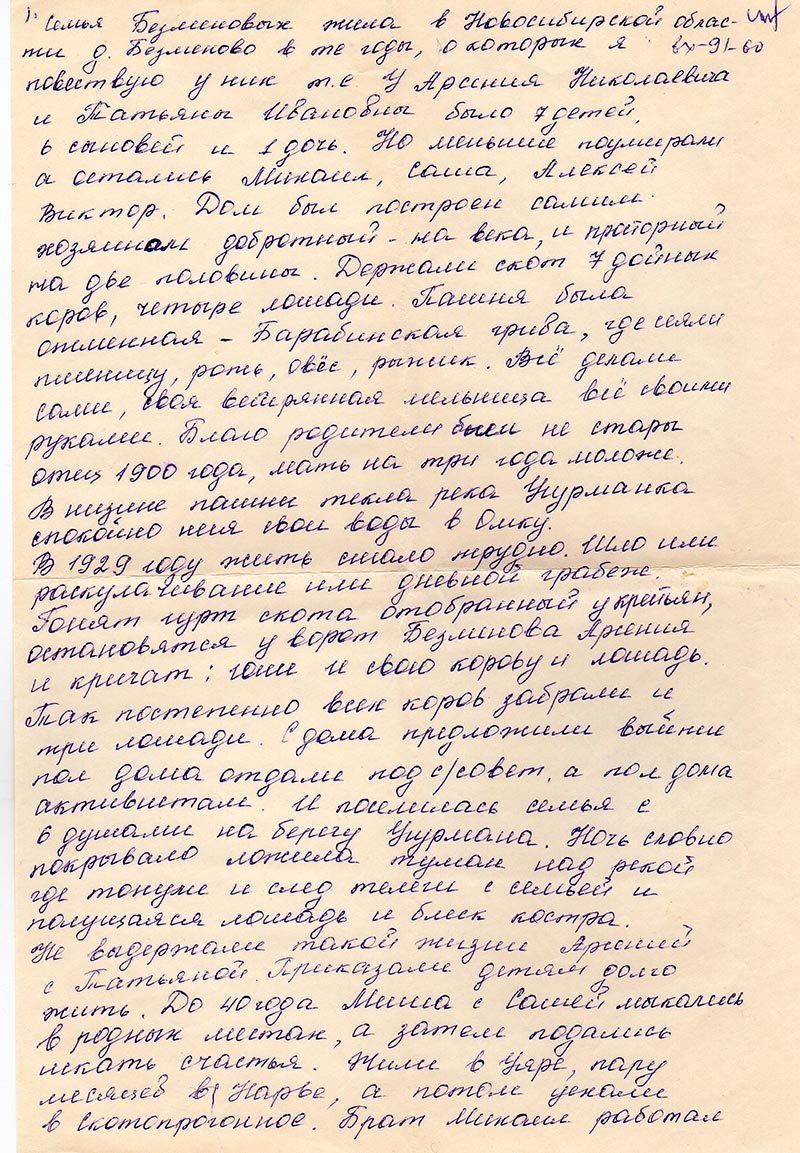 1. Семья Безменовых жила в Новосибирской облас-
ти д. Безменово в те годы, о которых я вх-91-60
повествую у них т.е у Арсения Николаевича
и Татьяны Ивановны было 7 детей,
6 сыновей и 1 дочь. Но меньшие поумирали
а остались Михаил, Саша, Алексей
Виктор. Дом был построен самим
хозяином добротный - на века, и просторный
на две половины. Держали скот 7 дойных
коров, четыре лошади. Пашня была
отменная - Барабинская грива, где сеяли
пшеницу, рожь, овёс, рыжик. Всё делали
сами, своя ветрянная мельница всё своими
руками. Благо родители были не стары
отец 1900 года, мать на три года моложе.
В низине пашни текла река Угурманка
спокойно неся свои воды в Омку.
В 1929 году жить стало трудно. Шло или
раскулачивание или дневной грабеж.
Гонят гурт скота отобранный у крестьян,
остановятся у ворот Безминова Арсения
и кричат: гони и свою корову и лошадь.
Так постепенно всех коров забрали и
три лошади. С дома предложили выйти
пол дома отдали под с/совет, а пол дома
активистам. И поселилась семья с
6 душами на берегу Угурмана. Ночь словно
покрывало ложила туман над рекой
где тонули и след телеги с семьей и
пасущаяся лошадь и блеск костра.
Не выдержали такой жизни Арсений
с Татьяной. Приказали детям долго
жить. До 40 года Миша с Сашей мыкались
в родных местах, а затем подались
искать счастья. Жили в Уяре, пару
месяцев в Нарве, а потом уехали
в Скотопрогонное. Брат Михаил работал